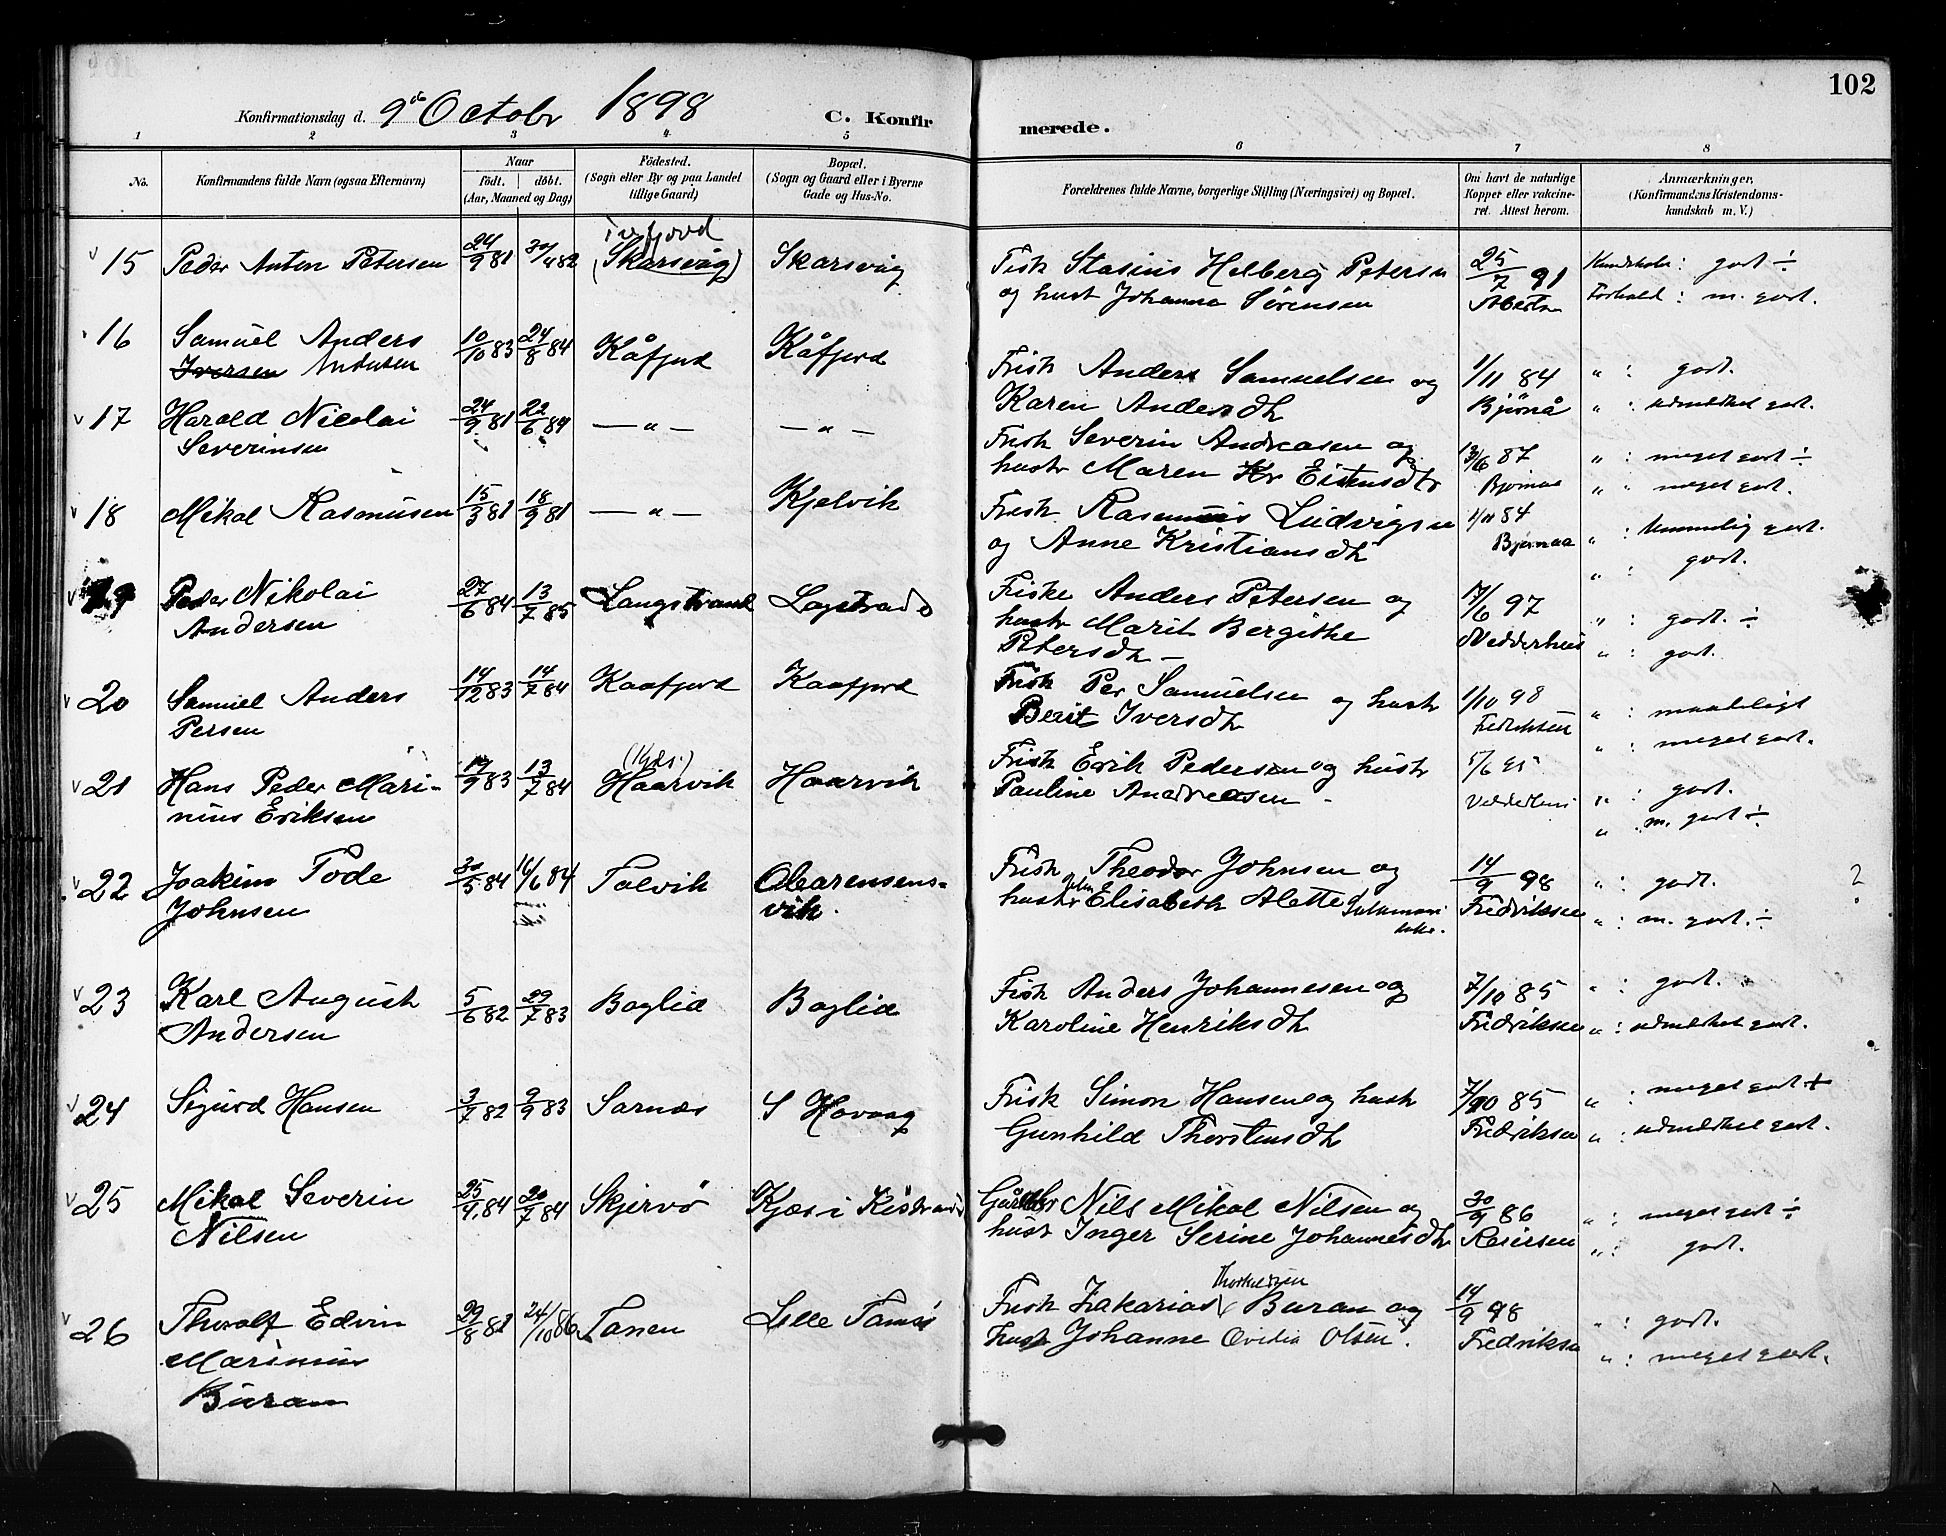 102
Konfirmationsdag d. 9de Octobr 1898 C. Konfirmerede.
1 2 3 4 5 6 7 8
No. Konfirmandens fulde Navn (ogsaa Efternavn) Naar født. døbt. (Aar, Maaned og Dag) Fødested. (Sogn eller By og paa Landet tillige Gaard) Bopæl. (Sogn og Gaard eller i Byerne Gade og Hus-No. Forældrenes fulde Navne, borgerlige Stilling (Næringsvei) og Bopæl. Om havt de naturlige Kopper eller vakcineret. Attest herom. Anmærkninger, (Konfirmandens Kristendomskundskab m. V.)
15 Peder Anton Petersen 24/9 81 30/4 82 (Skarsvåg) Skarsvåg Fisk Stasius Helberg Petersen 25/7 91 Kundskab: godt ÷
og hust Johanna Sørensen Forhold: m. godt.
16 Samuel Anders 10/10 83 24/8 84 Kåfjord Kåfjord Frisk Anders Samuelsen og 1/11 84 " : godt.
Iversen Andersen Karen Andersdtr Bjönå " : udmærket godt.
17 Harald Nicolai 24/9 81 22/6 84 — " — — " — Frisk Severin Andreasen og 13/6 87 " : meget godt ÷
Severinsen hustr Maren Kr " " meget godt.
18 Mikal Rasmusen 15/3 81 18/9 81 — " — Kjelvik Frisk Rasmus Ludvigsen 1/11 84 " : temmelig godt.
og Anne Kristiansdtr " : godt.
19 Peder Nikolai 27/6 84 13/7 85 Langstrand Fiske Anders Petersen og 97 " : godt. ÷
Andersen hustr Marit Bergithe " : godt.
Petersdtr —
20 Samuel Anders 14/12 83 14/7 84 Kaafjord Kaafjord Frisk Per Samuelsen og hustr 1/10 98 " : maadeligt
Persen Berit Iversdtr Fedriksen " : meget godt.
21 Hans Peder Mari- 83 13/7 84 Haarvik Haarvik Frisk Erik Pedersen og hustr " : godt.
nius Eriksen Pauline Andreasen. " : m. godt ÷
22 Joakim Tode 30/5 84 84 Talvik Clarensens- Frisk Theodor Johnsen og 14/9 98 " : godt. 2
Johnsen vik. hustr Elisabeth Alette Fredriksen " : m. godt. ÷
23 Karl August 5/6 82 29/7 83 Boglid Boglid Fisk Anders Johannesen og 7/10 85 " : godt.
Andersen Karoline Henriksdtr Fredriksen " : udmærket godt.
24 Sigurd Hansen 3/7 82 9/9 83 Sarnæs S Havaag Frisk Simon Hansen og hustr 7/10 85 " : meget godt +
Gunhild Thorstensdtr Fredriksen " : udmærket godt.
25 Mikal Severin 25/4 84 20/7 84 Skjervö Kjæs i Kistrand Nils Mikal Nilsen og 30/9 86 " : meget godt ÷
Nilsen hust Inger Serine Johannesdtr Reiersen " : godt.
26 Thoralf Edvin 29/8 81 24/10 86 Tanen Lille Tamsö Frisk Zakarias Thorkildsen Buran og 14/9 98 " : godt.
Marinius hust Johanne Ovidia Olsen. Fredriksen " : meget godt.
Buran